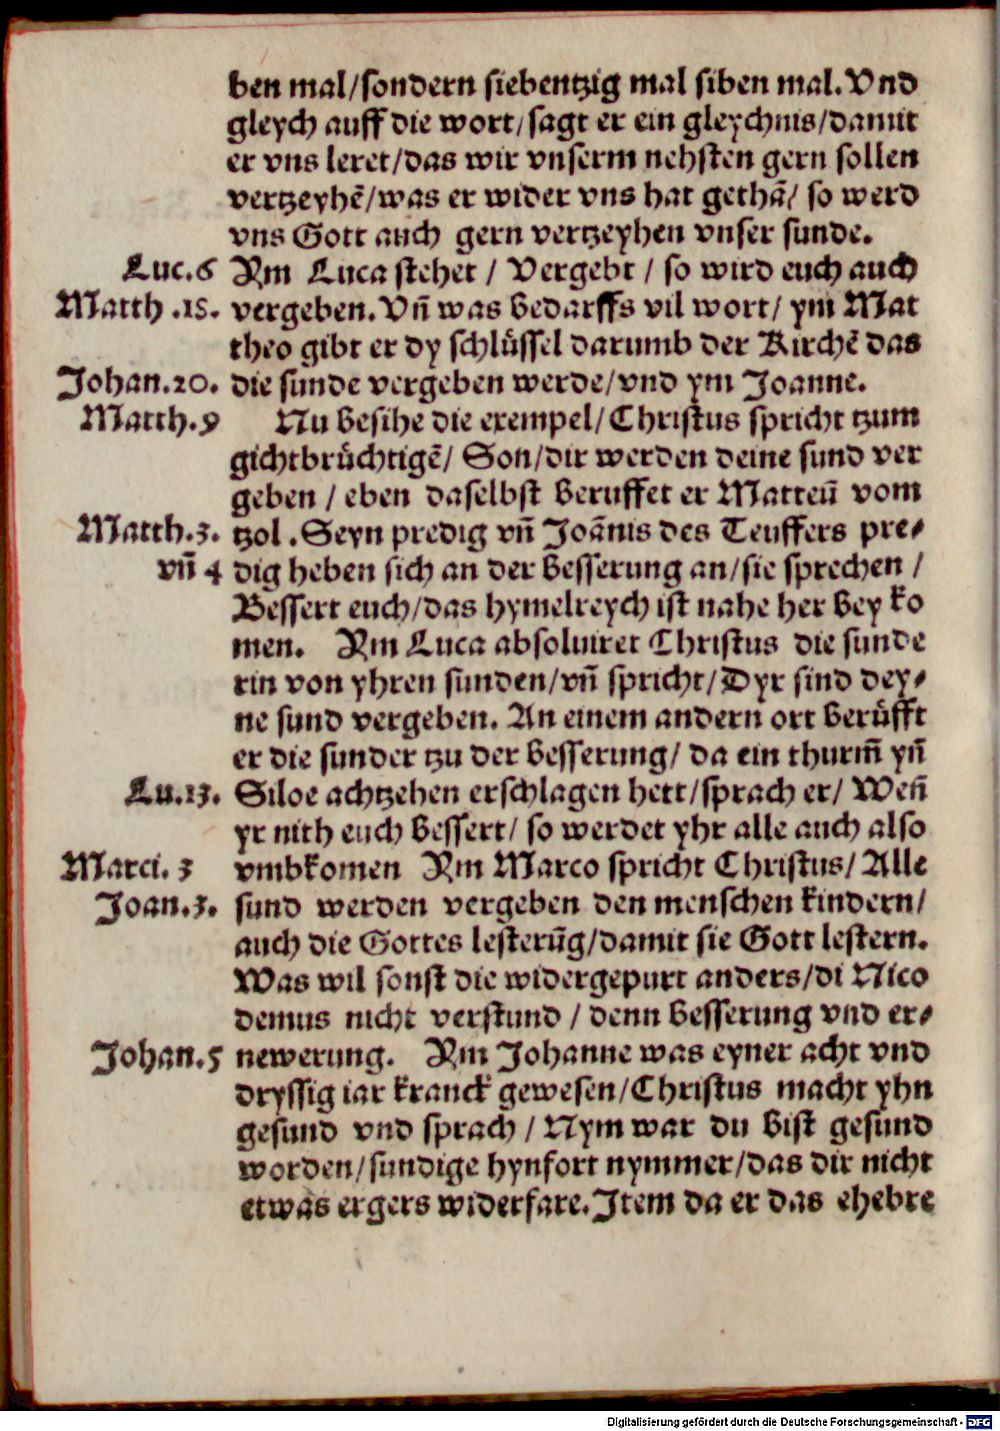 ben mal/sondern siebentzig mal siben mal. Vnd
gleych auff die wort/sagt er ein gleychnis/damit
er vns leret/das wir vnserm nehsten gern sollen
vertzeyhē/was er wider vns hat gethā/ so werd
vns Gott auch gern vertzeyhen vnser sunde.
Luc.6 Am Luca stehet / Vergebt / so wird euch auch
Matth .15. vergeben. Vn̄ was bedarffs vil wort/ ym Mat
theo gibt er dy schlůssel darumb der Kirchē das
Johan.20. die sunde vergeben werde/vnd ym Joanne.
Matth.9 Nu besihe die exempel/Christus spricht tzum
gichtbrůchtigē/ Son/dir werden deine sund ver
geben / eben daselbst beruffet er Matteū vom
Matth.3. tzol .Seyn predig vn̄ Joānis des Teuffers pre⸗
vn̄ 4 dig heben sich an der besserung an/sie sprechen /
Bessert euch/das hymelreych ist nahe her bey ko
men. Am Luca absoluiret Christus die sunde
rin von yhren sunden/vn̄ spricht/Dyr sind dey⸗
ne sund vergeben. An einem andern ort berůfft
er die sunder tzu der besserung/ da ein thurm̄ yn̄
Lu.13. Siloe achtzehen erschlagen hett/sprach er/ Wen̄
yr nith euch bessert/ so werdet yhr alle auch also
Marci. 3 vmbkomen Am Marco spricht Christus/ Alle
Joan.3. sund werden vergeben den menschen kindern/
auch die Gottes lesterūg/damit sie Gott lestern.
Was wil sonst die widergepurt anders/di Nico
demus nicht verstund / denn besserung vnd er⸗
Johan.5 newerung. Am Johanne was eyner acht vnd
dryssig iar kranck gewesen/Christus macht yhn
gesund vnd sprach / Nym war du bist gesund
worden/sundige hynfort nymmer/das dir nicht
etwas ergers widerfare. Item da er das ehebre
Digitalisierung gefördert durch die Deutsche Forschungsgemeinschaft - DFG